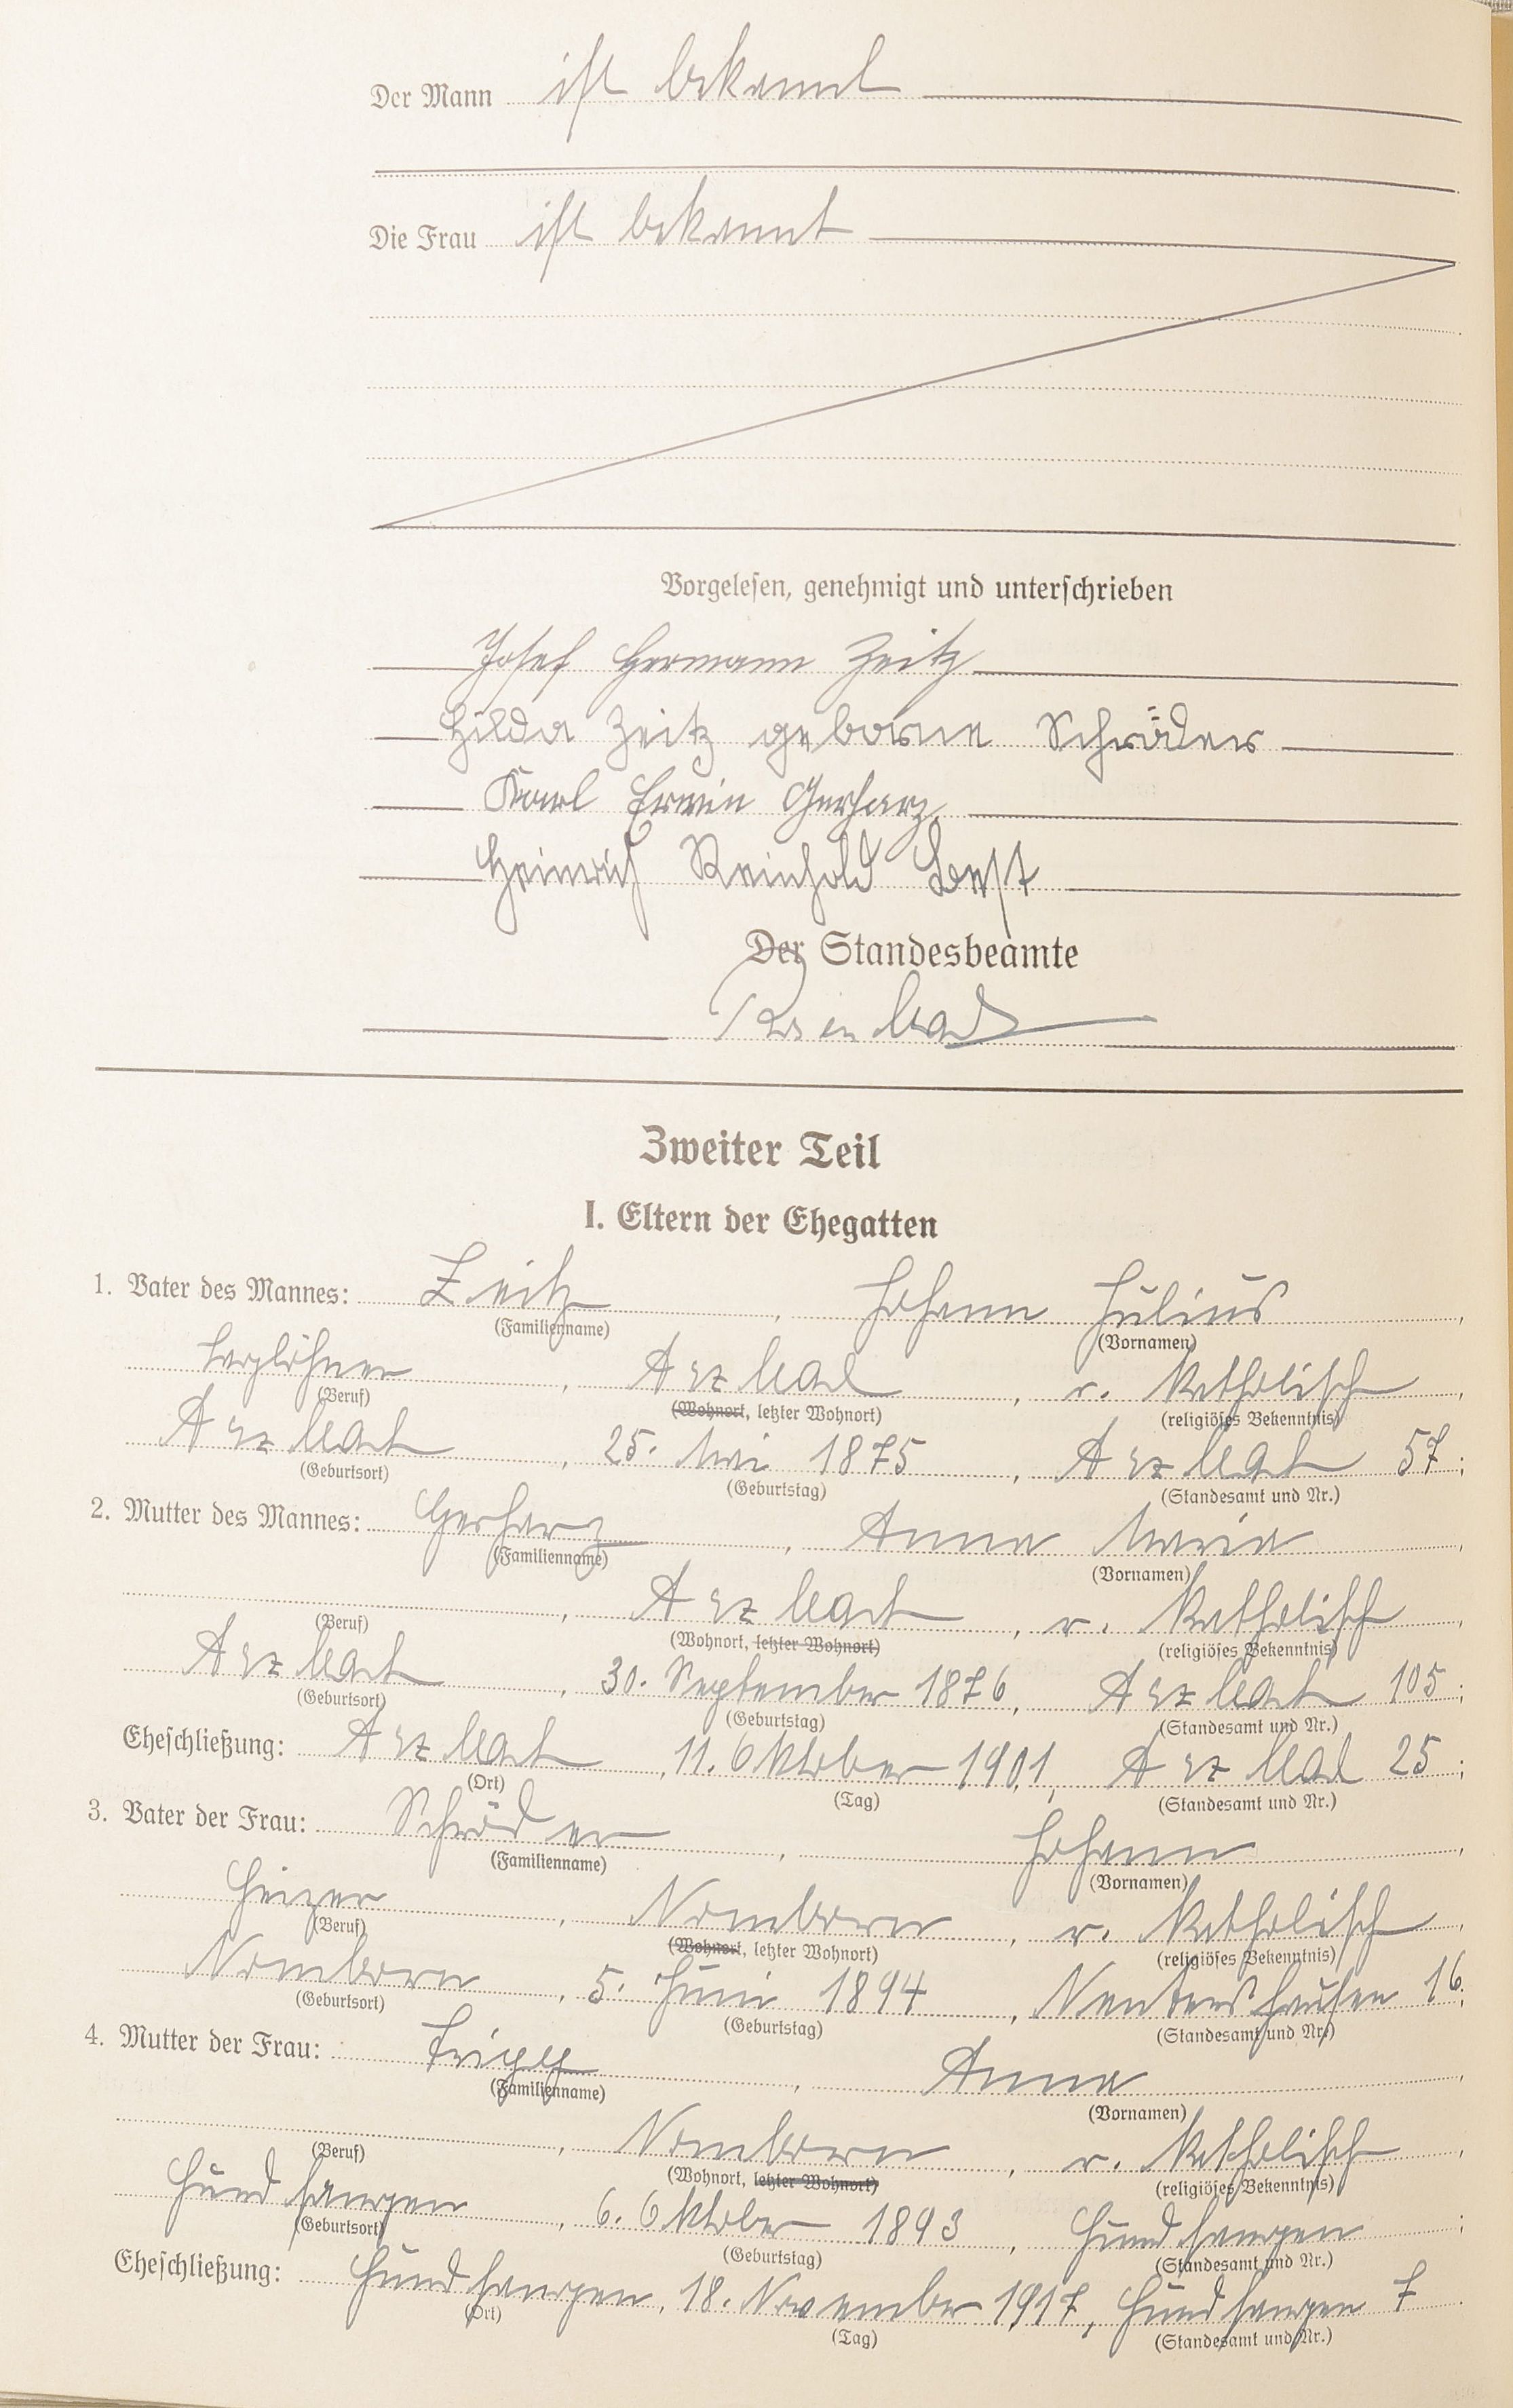 Der Mann ist bekannt
Die Frau ist bekannt
Vorgelesen, genehmigt und unterschrieben
Josef Hermann Zeitz
Hilda Zeitz geborne Schröder
Karl Erwin Gerharz
Heinrich Reinhold
Der Standesbeamte
Zweiter Teil
I. Eltern der Ehegatten
1. Vater des Mannes: Zeitz, Johann Julius,
(Familienname) (Vornamen)
Taglöhner, Arzbach, r. katholisch,
(Beruf) (Wohnort, letzter Wohnort) (religiöses Bekenntnis)
Arzbach, 25. Mai 1875, Arzbach 57;
(Geburtsort) (Geburtstag) (Standesamt und Nr.)
2. Mutter des Mannes: Gerharz, Anna Maria,
(Familienname) (Vornamen)
, Arzbach, r. katholisch,
(Beruf) (Wohnort, letzter Wohnort) (religiöses Bekenntnis)
Arzbach, 30. September 1876, Arzbach 105;
(Geburtsort) (Geburtstag) (Standesamt und Nr.)
Eheschließung: Arzbach, 11. Oktober 1901, Arzbach 25;
(Ort) (Tag) (Standesamt und Nr.)
3. Vater der Frau: Schröder, Johann,
(Familienname) (Vornamen)
Heizer, Nomborn, r. katholisch,
(Beruf) (Wohnort, letzter Wohnort) (religiöses Bekenntnis)
Nomborn, 5. Juni 1894, Nentershausen 16;
(Geburtsort) (Geburtstag) (Standesamt und Nr.)
4. Mutter der Frau: , Anna,
(Familienname) (Vornamen)
, Nomborn, r. katholisch,
(Beruf) (Wohnort, letzter Wohnort) (religiöses Bekenntnis)
Hundsangen, 6. Oktober 1893, Hundsangen;
(Geburtsort) (Geburtstag) (Standesamt und Nr.)
Eheschließung: Hundsangen, 18. November 1917, Hundsangen 7.
(Ort) (Tag) (Standesamt und Nr.)